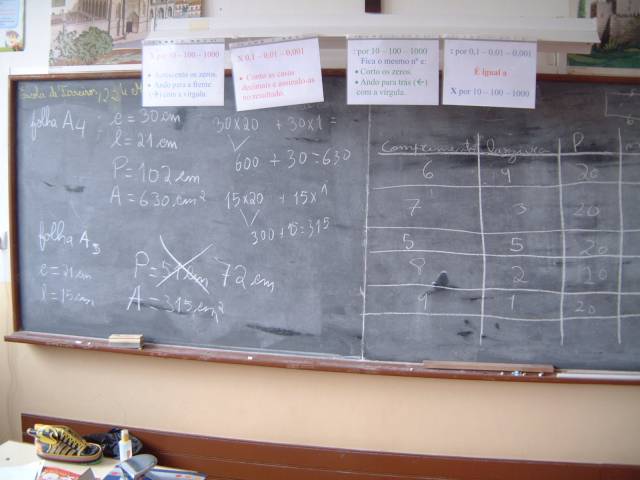 X por 10 – 100 – 1000
Acrescento os zeros.
Ando para a frente
(→) com a vírgula.
X 0,1 – 0,01 – 0,001
Conto as casas
decimais e
no resultado.
: por 10 – 100 – 1000
Fica o mesmo nº e:
Corto os zeros.
Ando para trás (←)
com a vírgula.
: por 0,1 – 0,01 – 0,001
É igual a
X por 10 – 100 – 1000
Escola de
folha A4
c = 30 cm
l = 21 cm
P = 102 cm
A = 630 cm²
30x20 + 30x1 =
600 + 30 = 630
15x20 + 15x1
300 + 15 = 315
folha A5
c = 21 cm
l = 15 cm
P = 51 cm 72 cm
A = 315 cm²
Comprimento largura P
6 4 20
7 3 20
5 5 20
8 2 20
9 1 20